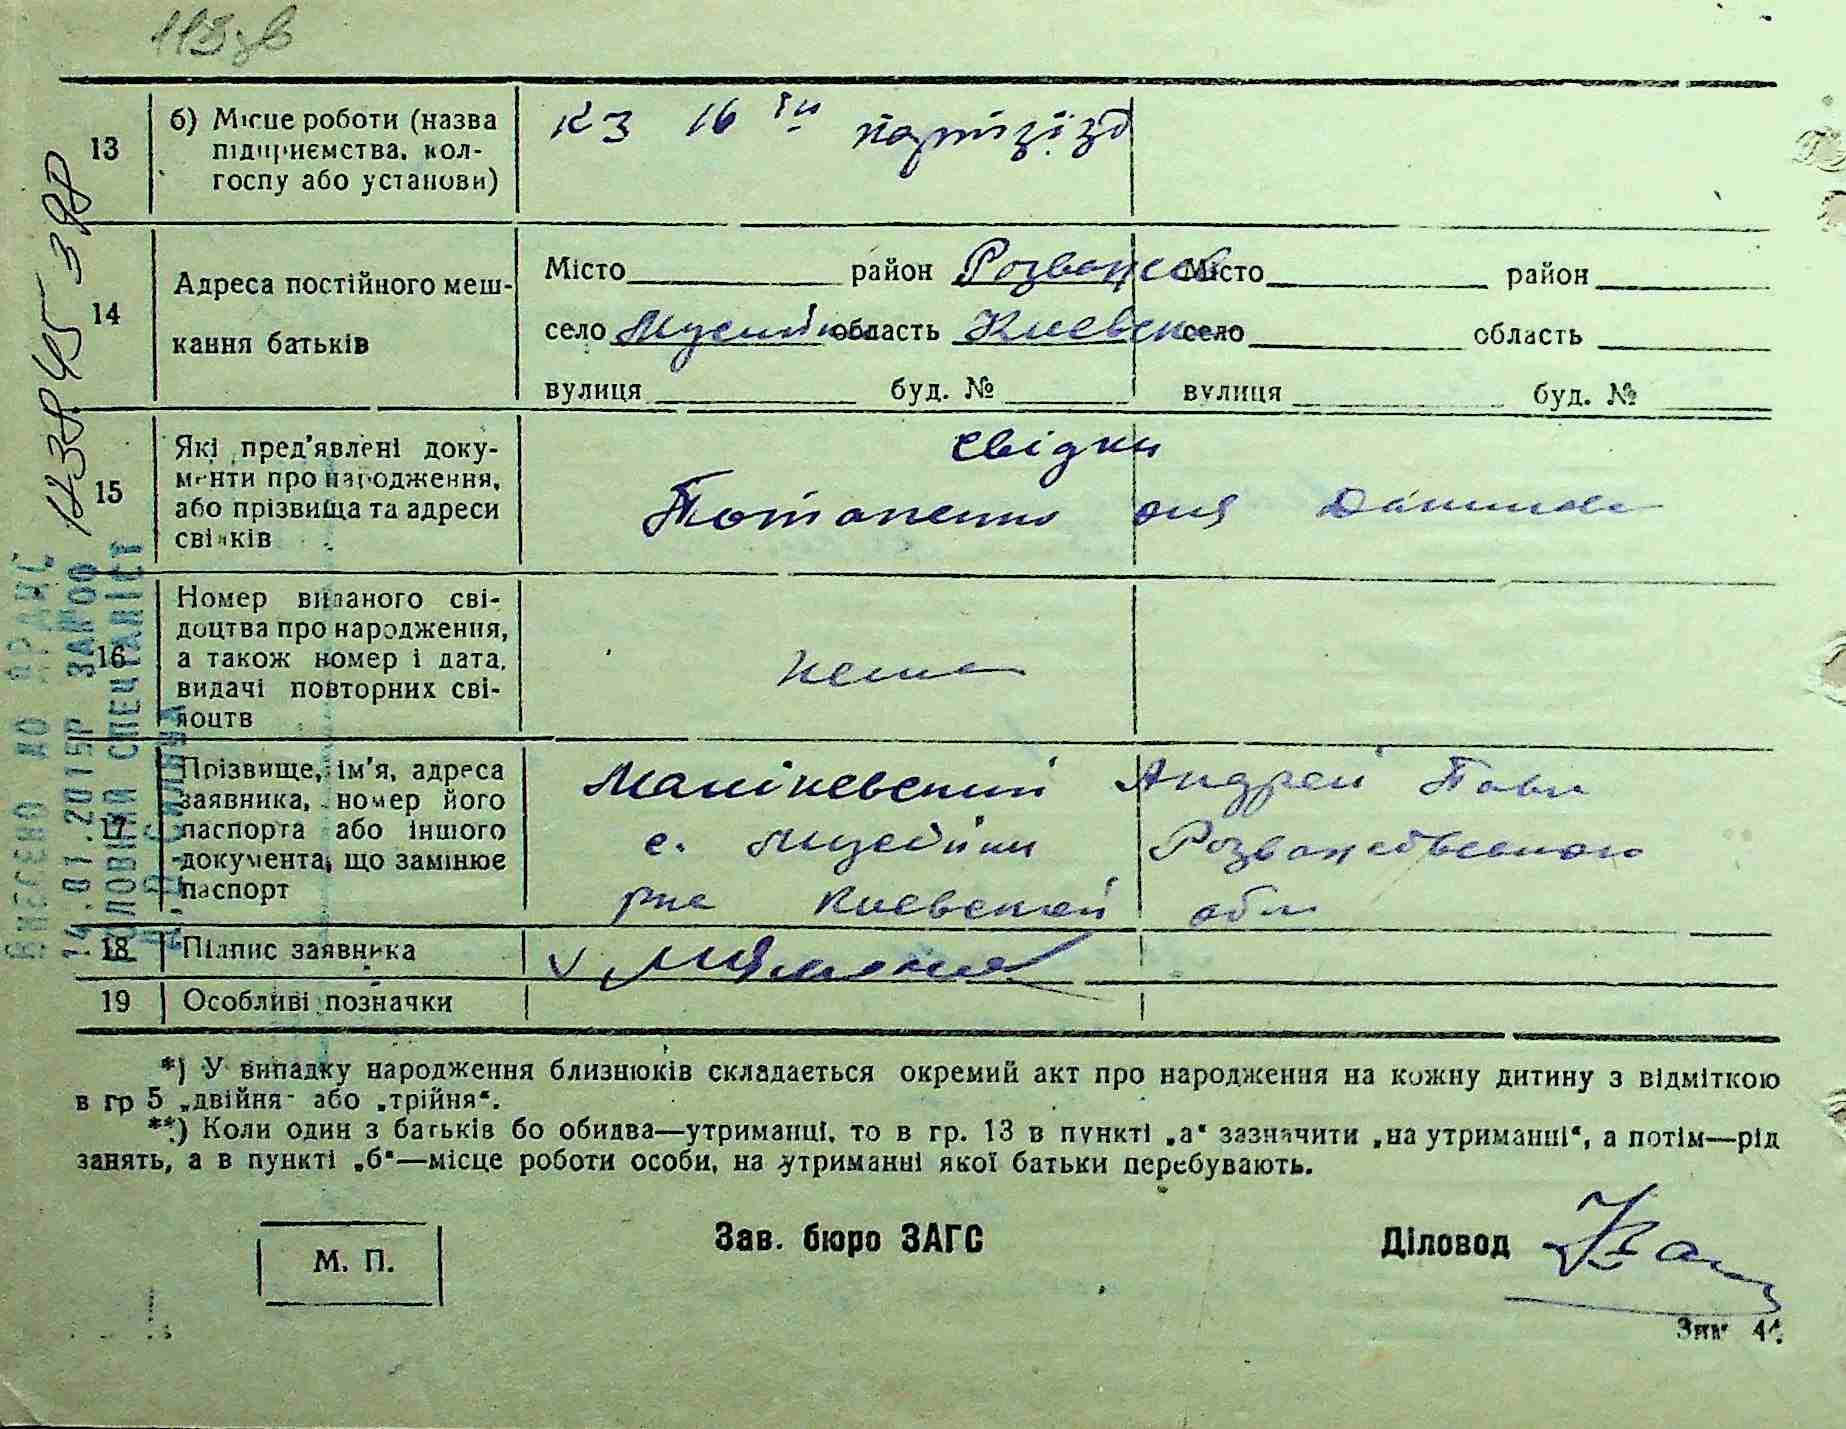 113 зв
13 б) Місце роботи (назва підприємства, колгоспу або установи) КЗ 16 ти партзїзд
14 Адреса постійного мешкання батьків
Місто район Розважев Місто район
село область Киевск село область
вулиця буд. № вулиця буд. №
15 Які пред'явлені документи про народження, або прізвища та адреси свідків
свідки
Потапенко Данилова
16 Номер виданого свідоцтва про народження, а також номер і дата, видачі повторних свідоцтв
нема
17 Прізвище, ім'я, адреса заявника, номер його паспорта або іншого документа, що замінює паспорт
Маліневский Андрей Павл
с. Мусійки Розважевського
рна Киевской обл
18 Підпис заявника
19 Особливі позначки
*) У випадку народження близнюків складається окремий акт про народження на кожну дитину з відміткою
в гр 5 „двійня" або „трійня“.
**) Коли один з батьків бо обидва—утриманці, то в гр. 13 в пункті „а“ зазначити „на утриманні“, а потім—рід
занять, а в пункті „б“—місце роботи особи, на утриманні якої батьки перебувають.
М. П.
Зав. бюро ЗАГС
Діловод
ВНЕСЕНО ДО ДРАЦС
14.01.2015Р ЗАМ°00
ГОЛОВНИЙ СПЕЦІАЛІСТ